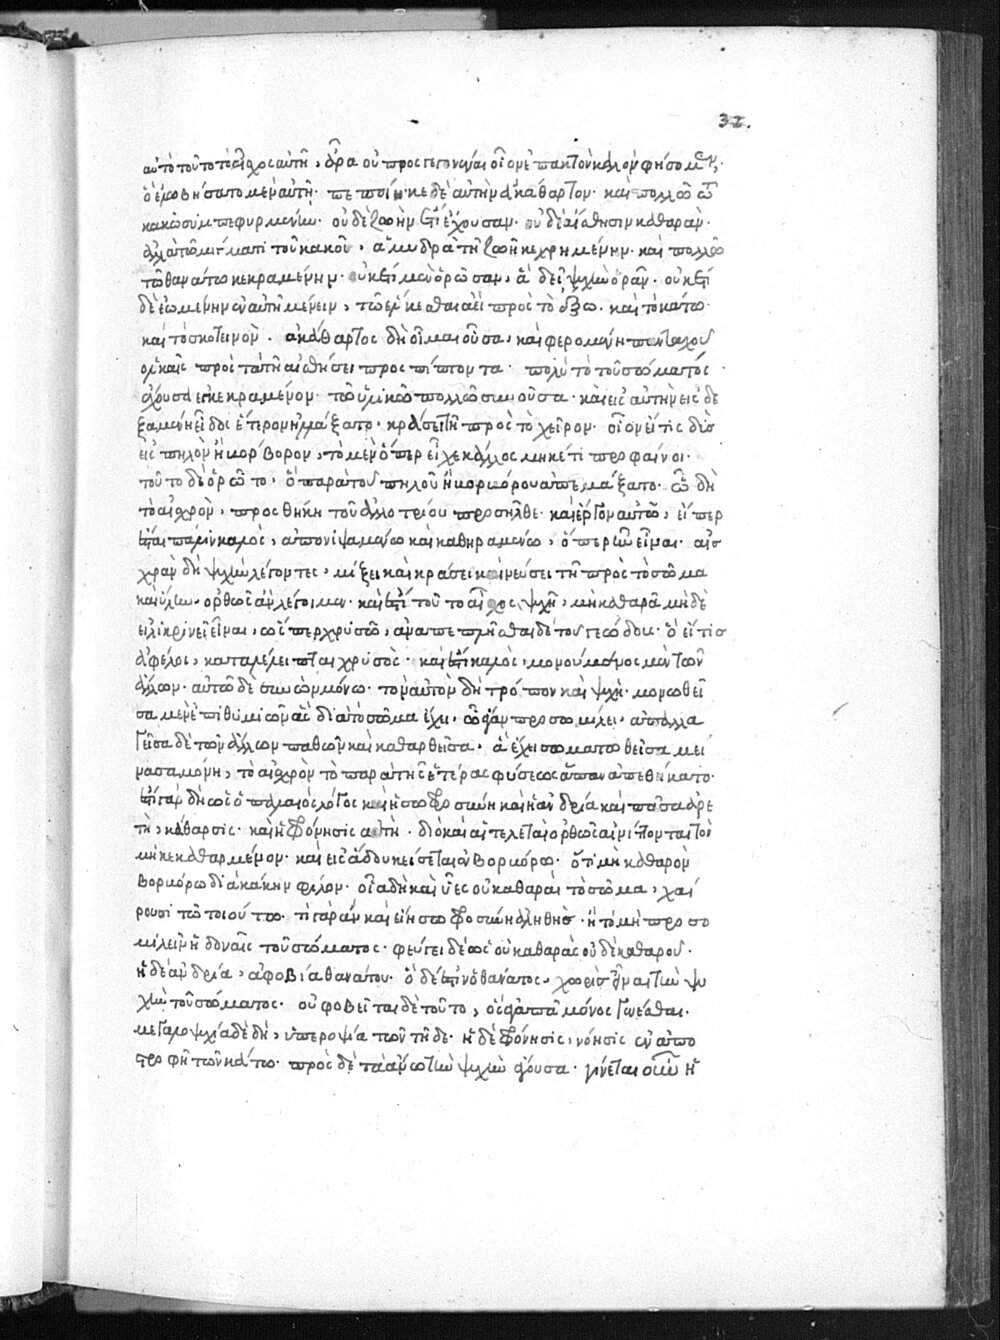 32.
αὐτὸ τοῦτο τὸ αἶσχος αὐτῇ, ἆρα οὐ προσγεγονέναι οἷον ἐπακτὸν καλὸν φήσομεν,
ὃ ἐλωβήσατο μὲν αὐτῇ· πεποίηκε δὲ αὐτὴν ἀκάθαρτον· καὶ πολλῷ τῷ
κακῷ συμπεφυρμένην· οὐδὲ ζωὴν ἔτι ἔχουσαν· οὐδὲ αἴσθησιν καθαρὰν·
ἀλλὰ τῷ μίγματι τοῦ κακοῦ, ἀμυδρᾷ τῇ ζωῇ κεχρημένην· καὶ πολλῷ
τῷ θανάτῳ κεκραμένην· οὐκέτι μὲν ὁρῶσαν, ἃ δεῖ ψυχὴν ὁρᾶν· οὐκέτι
δὲ ἐωμένην ἐν αὐτῇ μένειν, τῷ ἕλκεσθαι ἀεὶ πρὸς τὸ ἔξω· καὶ τὸ κάτω·
καὶ τὸ σκοτεινὸν. ἀκάθαρτος δὴ οἶμαι οὖσα, καὶ φερομένη πανταχοῦ
ὁλκαῖς πρὸς τὰ τῇ αἰσθήσει προσπίπτοντα· πολὺ τὸ τοῦ σώματος
ἔχουσα ἐγκεκραμένον· τῷ ὑλικῷ πολλῷ συνοῦσα· καὶ εἰς αὐτὴν εἰσδε
ξαμένη εἶδος ἕτερον ἠλλάξατο· κράσει τῇ πρὸς τὸ χεῖρον· οἷον εἴ τις δὺς
εἰς πηλὸν ἢ βόρβορον, τὸ μὲν ὅπερ εἶχε κάλλος μηκέτι προφαίνοι·
τοῦτο δὲ ὁρῷτο· ὃ παρὰ τοῦ πηλοῦ ἢ βορβόρου ἀπεμάξατο· ᾧ δὴ
τὸ αἰσχρὸν, προσθήκῃ τοῦ ἀλλοτρίου προσῆλθε· καὶ ἔργον αὐτῷ, εἴπερ
ἔσται πάλιν καλὸς, ἀπονιψαμένῳ καὶ καθηραμένῳ, ὅπερ ἦν εἶναι· αἰσ
χρὰν δὴ ψυχὴν λέγοντες, μίξει καὶ κράσει καὶ νεύσει τῇ πρὸς τὸ σῶμα
καὶ ὕλην· ὀρθῶς ἂν λέγοιμεν· καὶ ἔστι τοῦτο αἶσχος ψυχῇ, μὴ καθαρᾷ μηδὲ
εἰλικρινεῖ εἶναι, ὥσπερ χρυσῷ, ἀναπεπλῆσθαι δὲ τοῦ γεώδους· ὃ εἴ τις
ἀφέλοι, καταλέλειπται χρυσὸς· καὶ ἔστι καλὸς, μονούμενος μὲν τῶν
ἄλλων· αὑτῷ δὲ συνὼν μόνῳ· τὸν αὐτὸν δὴ τρόπον καὶ ψυχὴ· μονωθεῖ
σα μὲν ἐπιθυμιῶν ἃς διὰ τὸ σῶμα ἔχει, ᾧ ἄγαν προσωμίλει· ἀπαλλα
γεῖσα δὲ τῶν ἄλλων παθῶν καὶ καθαρθεῖσα, ἃ ἔχει σωματωθεῖσα μεί
νασα μόνη, τὸ αἰσχρὸν τὸ παρὰ τῆς ἑτέρας φύσεως ἅπαν ἀπεθήκατο·
ἔστι γὰρ δὴ ὡς ὁ παλαιὸς λόγος καὶ ἡ σωφροσύνη καὶ ἡ ἀνδρία καὶ πᾶσα ἀρε
τὴ, κάθαρσις· καὶ ἡ φρόνησις αὐτὴ· διὸ καὶ αἱ τελεταὶ ὀρθῶς αἰνίττονται τὸν
μὴ κεκαθαρμένον· καὶ εἰς ἅδου κείσεται ἐν βορβόρῳ· ὅτι μὴ καθαρὸν
βορβόρῳ διὰ κάκην φίλον· οἷα δὴ καὶ ὕες οὐ καθαραὶ τὸ σῶμα, χαί
ρουσι τῷ τοιούτῳ· τί γὰρ ἂν καὶ εἴη σωφροσύνη ἀληθὴς· ἢ τὸ μὴ προσο
μιλεῖν ἡδοναῖς τοῦ σώματος· φεύγει δὲ ὡς οὐ καθαρὰς οὐδὲ καθαροῦ·
ἡ δὲ ἀνδρία, ἀφοβία θανάτου· ὁ δέ ἐστιν ὁ θάνατος, χωρὶς εἶναι τὴν ψυ
χὴν τοῦ σώματος· οὐ φοβεῖται δὲ τοῦτο, ὃς ἀγαπᾷ μόνος γενέσθαι·
μεγαλοψυχία δὲ δὴ, ὑπεροψία τῶν τῇδε· ἡ δὲ φρόνησις, νόησις ἐν ἀπο
στροφῇ τῶν κάτω· πρὸς δὲ τὰ ἄνω τὴν ψυχὴν ἄγουσα· γίνεται οὖν ἡ